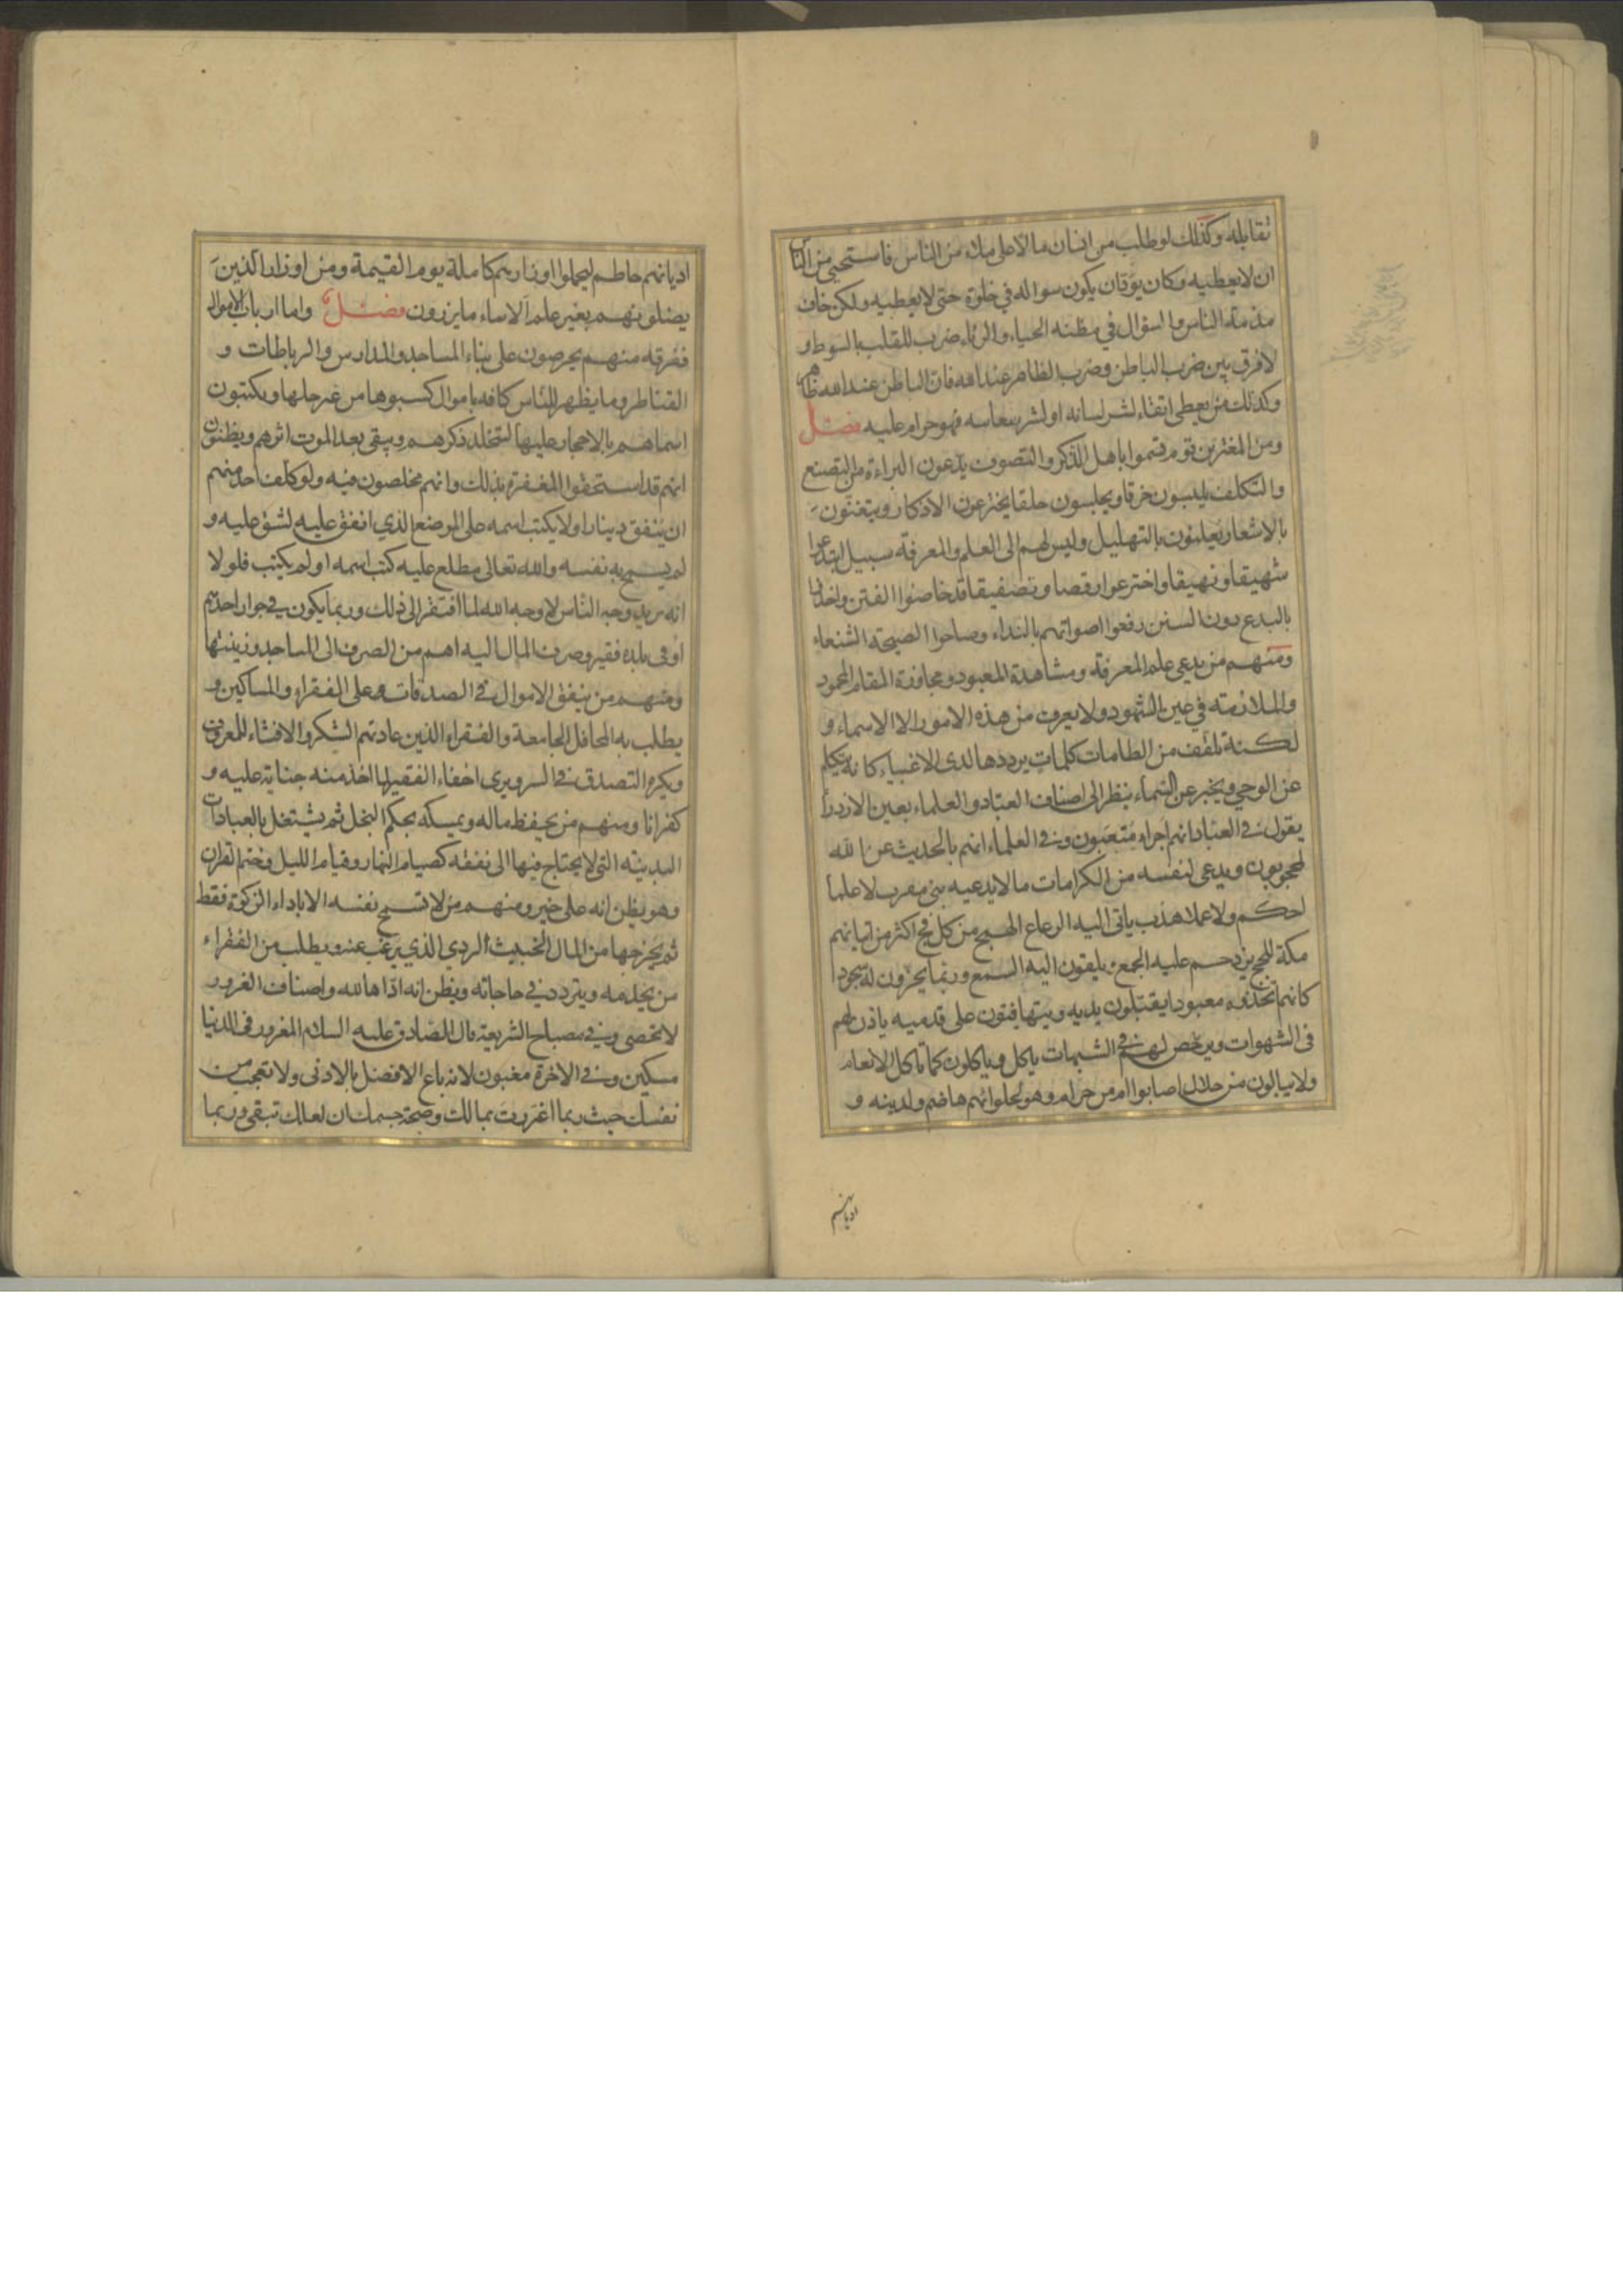 تقابله وكذلك لو طلب من انسان مالا على ملاء من الناس فاستحيى من الناس
ان لا يعطيه وكان يود ان يكون سواله في خلوة حتى لا يعطيه ولكن خاف
مذمة الناس والسؤال في مظنه الحياء والرياء ضرب للقلب بالسوط و
لا فرق بين ضرب الباطن وضرب الظاهر عند الله فان الباطن عند الله ظاهر
وكذلك من يعطى اتقاء لشر لسانه او لشر سعايته فهو حرام عليه فصل
ومن المغترين قوم تسموا باهل الذكر والتصوف يدعون البراءة من التصنع
والتكلف يلبسون خرقا ويجلسون حلقا يخترعون الاذكار ويتغنون
بالاشعار يعلنون بالتهليل وليس لهم الى العلم والمعرفة سبيل ابتدعوا
شهيقا ونهيقا واخترعوا رقصا وتصفيقا قد خاضوا الفتن واخذوا
بالبدع دون السنن رفعوا اصواتهم بالنداء وصاحوا الصيحة الشنعاء
ومنهم من يدعى علم المعرفة ومشاهدة المعبود ومجاوزة المقام المحمود
والملازمة في عين الشهود ولا يعرف من هذه الامور الا الاسماء و
لكنه تلقف من الطامات كلمات يرددها لدى الاغبياء كانه يتكلم
عن الوحي ويخبر عن السماء ينظر الى اصناف العباد والعلماء بعين الازدراء
يقول في العباد انهم اجراء متعبون وفي العلماء انهم بالحديث عن الله
لمحجوبون ويدعى لنفسه من الكرامات ما لا يدعيه نبي مقرب لا علما
احكم ولا عملا هذب ياتى اليه الرعاع الهمج من كل فج اكثر من اتيانهم
مكة للحج يزدحم عليه الجمع ويلقون اليه السمع وربما يخرون له سجودا
كانهم اتخذوه معبودا يقبلون يديه ويتهافتون على قدميه ياذن لهم
فى الشهوات ويرخص لهم في الشبهات ياكل وياكلون كما تاكل الانعام
ولا يبالون من حلال اصابوا ام من حرام وهو لحلوائهم هاضم ولدينه و
اديانهم
اديانهم حاطم ليحملوا اوزارهم كاملة يوم القيمة ومن اوزار الذين
يضلونهم بغير علم الا ساء ما يزرون فصل واما ارباب الاموال
ففرقه منهم يحرصون على بناء المساجد والمدارس والرباطات و
القناطر وما يظهر للناس كافه باموال كسبوها من غير حلها ويكتبون
اسماهم بالاحجار عليها لتخلد ذكرهم ويبقى بعد الموت اثرهم ويظنون
انهم قد استحقوا المغفرة بذلك وانهم مخلصون فيه ولو كلف احد منهم
ان ينفق دينارا ولا يكتب اسمه على الموضع الذي انفق عليه لشق عليه و
لم يسمح به نفسه والله تعالى مطلع عليه كتب اسمه او لم يكتب فلولا
انه يريد وجه الناس لا وجه الله لما افتقر الى ذلك وربما يكون في جوار احدهم
او في بلده فقير وصرف المال اليه اهم من الصرف الى المساجد وزينتها
ومنهم من ينفق الاموال في الصدقات وعلى الفقراء والمساكين و
يطلب به المحافل الجامعة والفقراء الذين عادتهم الشكر والافشاء للمعروف
ويكره التصدق في السر ويرى اخفاء الفقير لما اخذ منه جناية عليه و
كفرانا ومنهم من يحفظ ماله ويمسكه بحكم البخل ثم يشتغل بالعبادات
البدنيته التى لا يحتاج فيها الى نفقه كصيام النهار وقيام الليل وختم القران
وهو يظن انه على خير ومنهم من لا تسمح نفسه الا باداء الزكوة فقط
ثم يخرجها من المال الخبيث الردي الذي يرغب عنه ويطلب من الفقراء
من يخدمه ويتردد في حاجاته ويظن انه اداها لله واصناف الغرور
لا تحصى وفي مصباح الشريعة قال الصادق عليه السلام المغرور فى الدنيا
مسكين وفي الاخرة مغبون لانه باع الافضل بالادنى ولا تعجب من
نفسك حيث ربما اغررت بمالك وصحة جسمك ان لعلك تبقى وربما